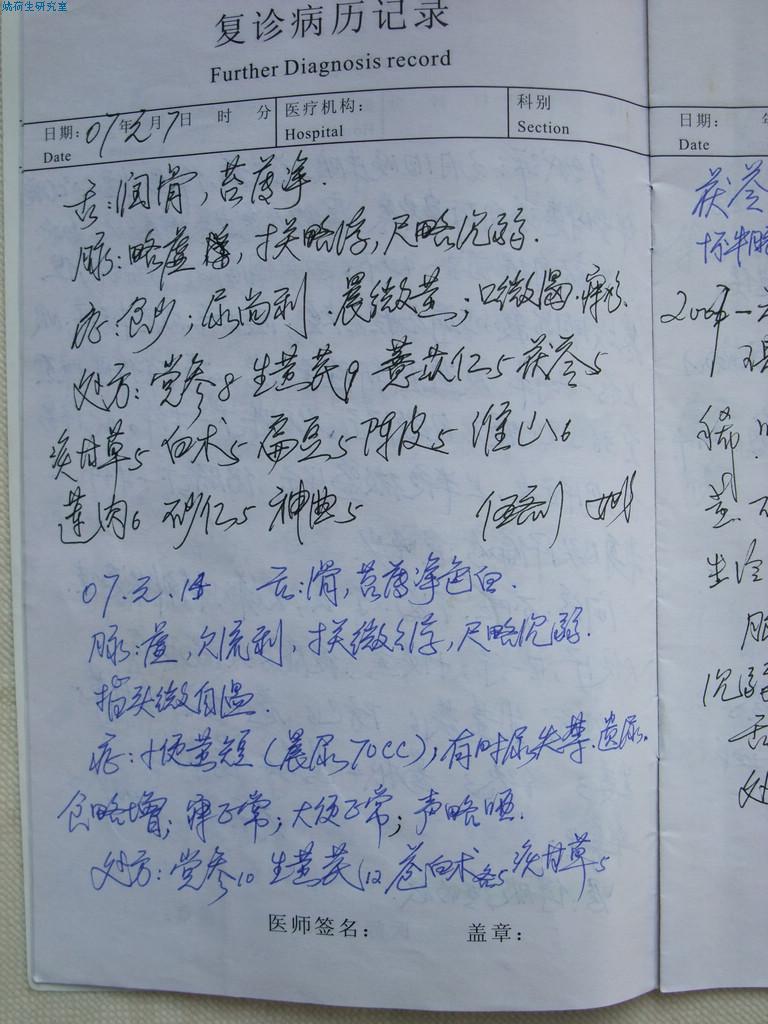 姚荷生研究室
复诊病历记录
Further Diagnosis record
日期: 07年元月7日 时 分 医疗机构: 科别
Date Hospital Section
舌:润滑,苔薄净.
脉:略虚,寸关略浮,尺略沉弱.
症:食少;尿尚利.晨微黄;口微渴.
处方:党参8 生黄芪9 薏苡仁5 茯苓5
炙甘草5 白术5 扁豆5 陈皮5 淮山6
莲肉6 砂仁5 神曲5 伍剂 姚
07.元.14 舌:滑,苔薄净色白.
脉:虚,欠流利,寸关微浮,尺略沉弱.
指头微自温.
症:小便黄短(晨尿70CC),有时尿失禁.遗尿.
食略增;寐正常;大便正常;声略哑.
处方:党参10 生黄芪12 苍白术各5 炙甘草5
医师签名: 盖章:
日期: 年
Date
茯苓
稀
生冷
脉
沉弱
舌
处